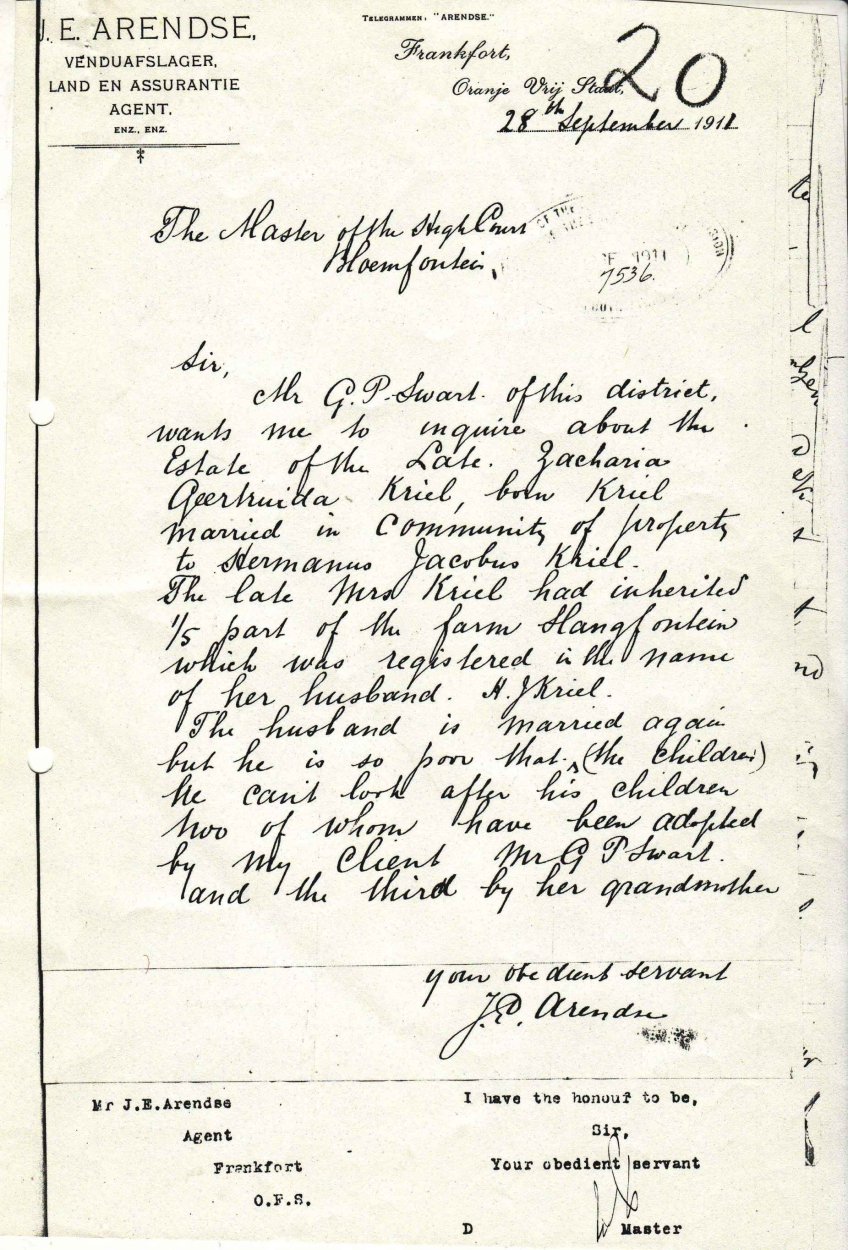 J. E. ARENDSE,
VENDUAFSLAGER,
LAND EN ASSURANTIE
AGENT,
ENZ., ENZ.
TELEGRAMMEN, "ARENDSE."
Frankfort,
Oranje Vrij Staat,
20
28th September 1911
The Master of the High Court
Bloemfontein,
OF THE
1911
7536.
Sir,
Mr G. P. Swart. of this district,
wants me to inquire about the
Estate of the Late. Zacharia
Geertruida Kriel, born Kriel
married in Community of property
to Hermanus Jacobus Kriel.
The late Mrs Kriel had inherited
1/5 part of the farm Slangfontein
which was registered in the name
of her husband. H. J Kriel.
The husband is married again
but he is so poor that (the children)
he can't look after his children
two of whom have been adopted
by my client Mr G P Swart.
and the third by her grandmother
your obedient servant
J.E. Arendse
Mr J.E.Arendse
Agent
Frankfort
O.F.S.
I have the honour to be,
Sir,
Your obedient servant
D Master